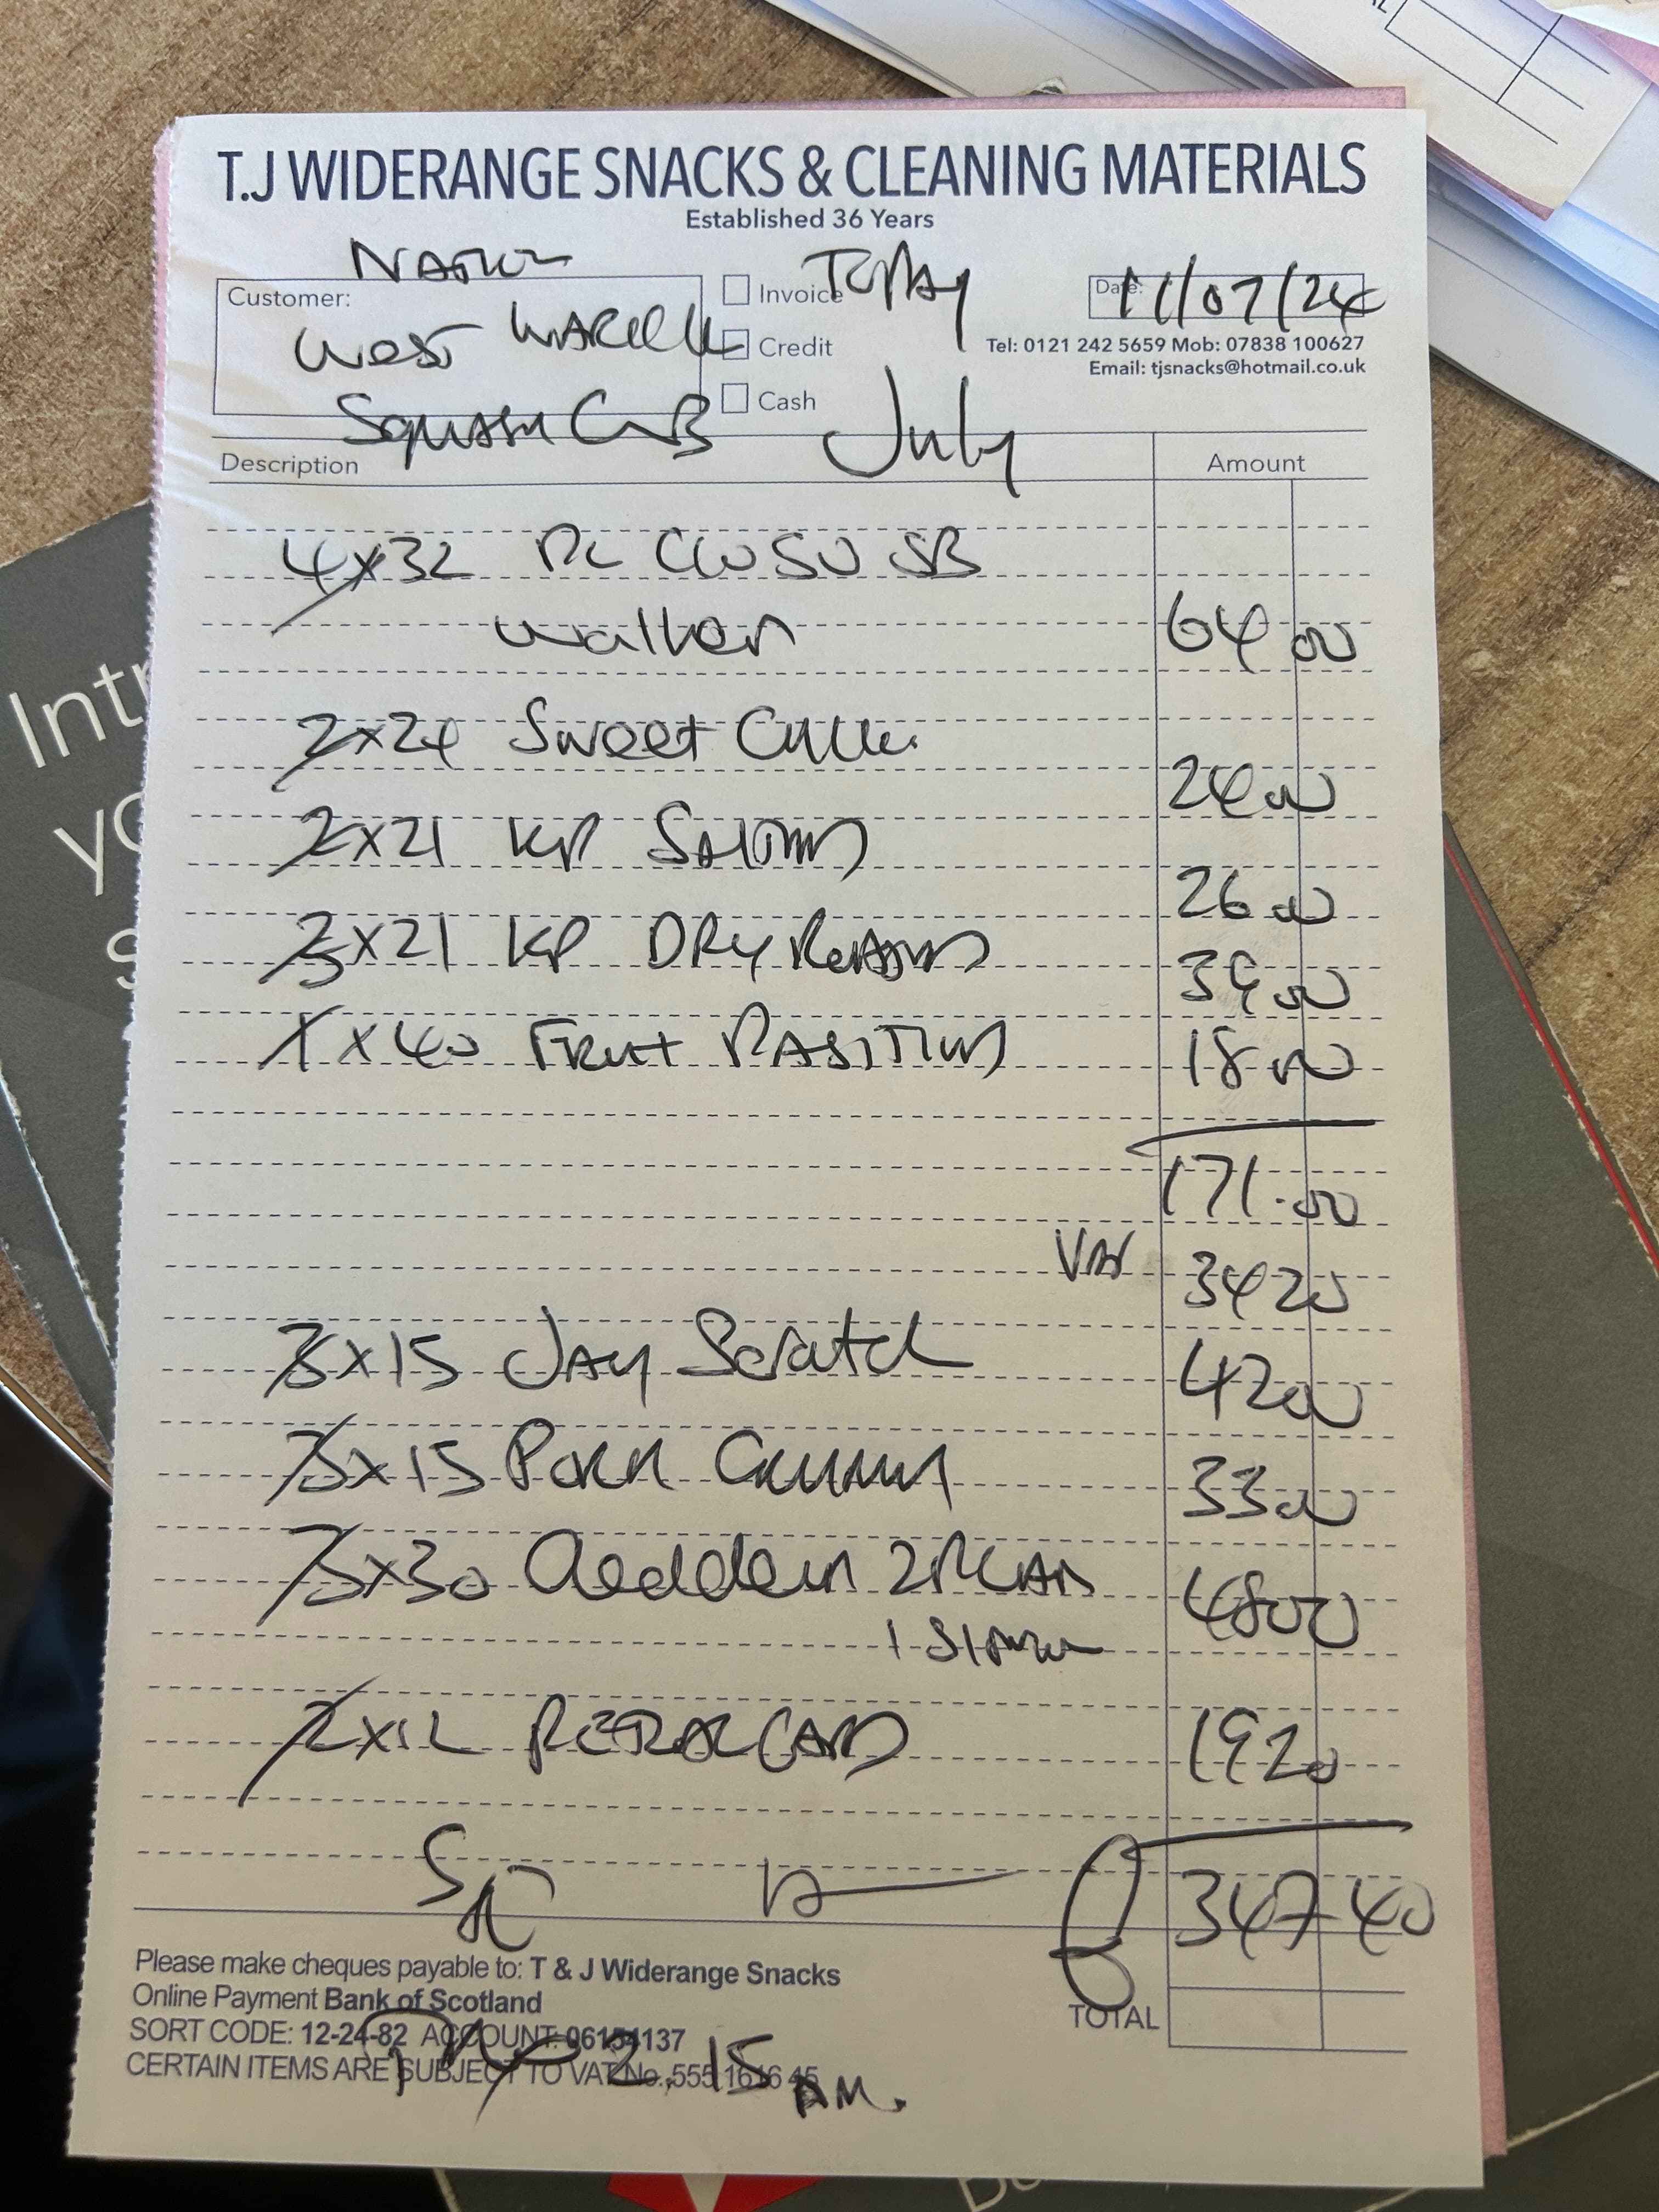 T.J WIDERANGE SNACKS & CLEANING MATERIALS
Established 36 Years
Customer:
West
Squash
Invoice
Credit
Cash
Today
July
Date:
11/07/24
Tel: 0121 242 5659 Mob: 07838 100627
Email: tjsnacks@hotmail.co.uk
Description Amount
4x32 SB
Walker 64 00
2x24 Sweet 24 00
2x21 KP 26 00
3x21 KP DRY 39 00
1x40 Fruit 18 00
171.00
VAT 34 20
3x15 Jay Scratch 42 00
3x15 Pork 33 00
3x30 48 00
2x12 19 20
347 40
TOTAL
Please make cheques payable to: T & J Widerange Snacks
Online Payment Bank of Scotland
SORT CODE: 12-24-82 ACCOUNT:
CERTAIN ITEMS ARE SUBJECT TO VAT No. 555 1616 45
2.15
Intr
yo
s